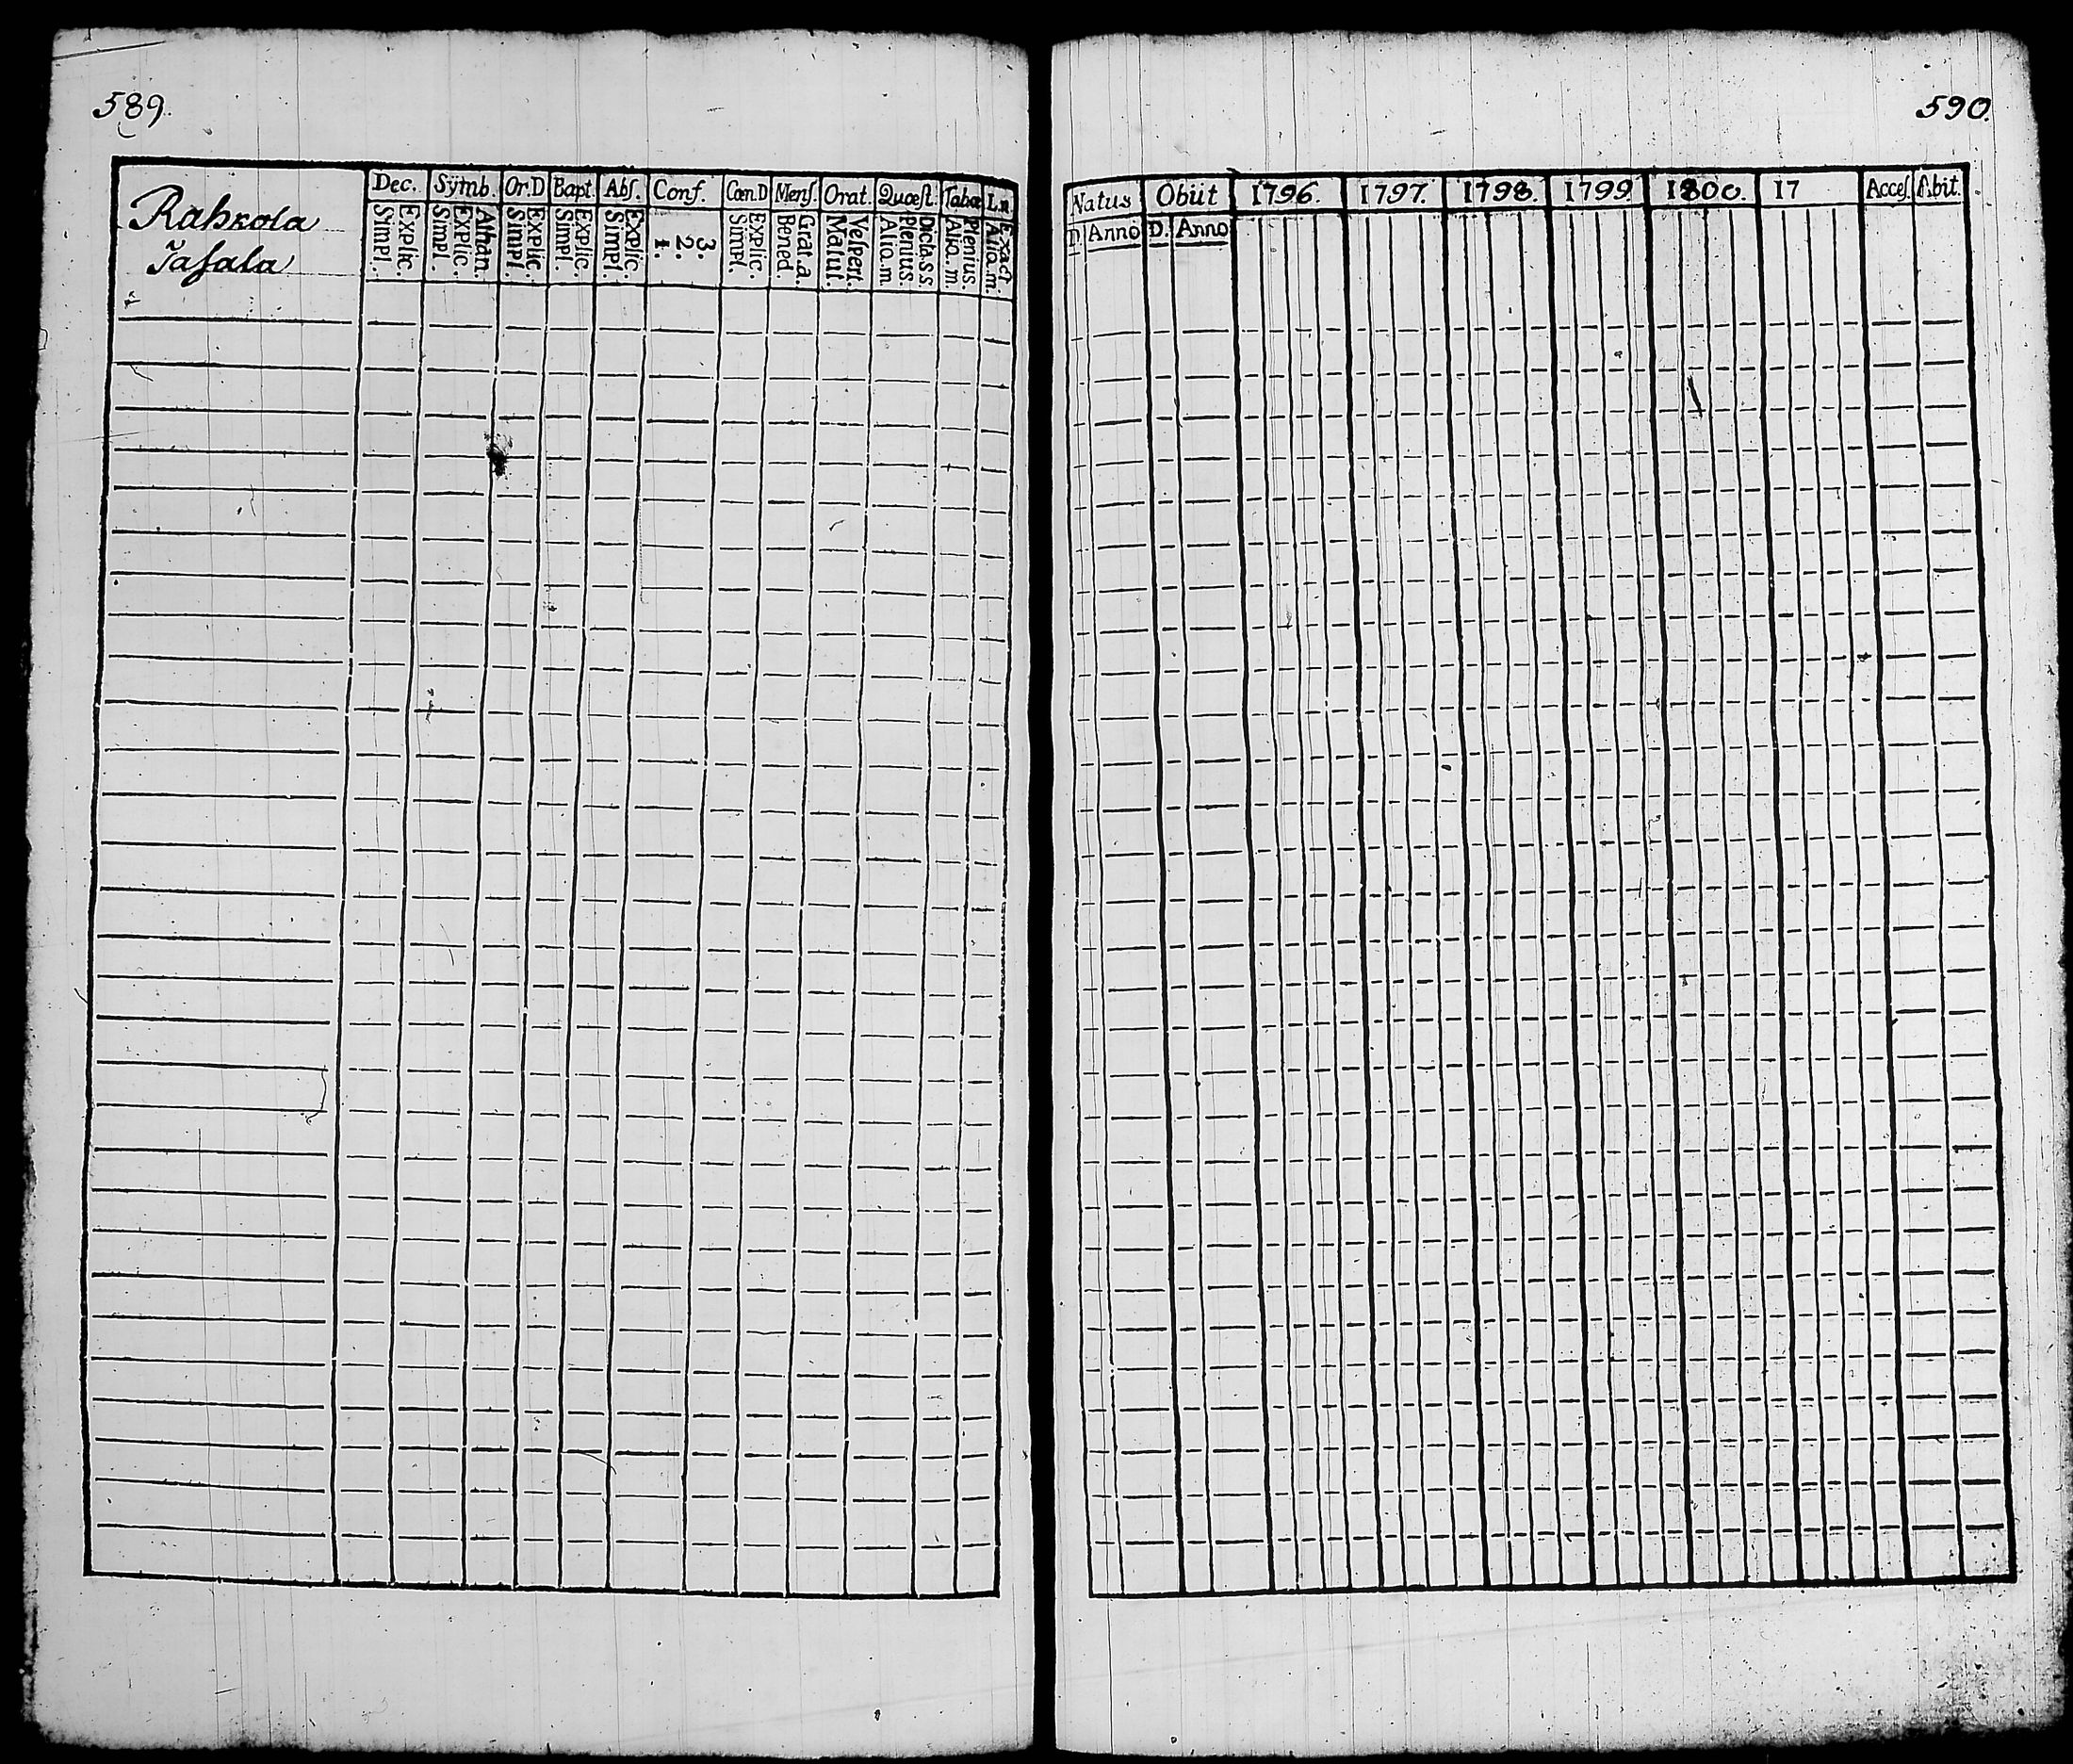 589.
Rahkola
Tasala
Dec. Symb. Or.D Bapt. Abs. Conf. Cœn.D Mens. Orat. Quæst. Tabæ
Simpl. Explic. Simpl. Explic. Athan. Simpl. Explic. Simpl. Explic. Simpl. Explic. 1. 2. 3. Simpl. Explic. Bened. Grat.a. Matut. Vespert. Aliq.m. Plenius. Dicta.s.s Aliq.m. Plenius. Aliq.m. Exact.
590.
Natus Obiit 1796. 1797. 1798. 1799. 1800. 17 Acces. Abit.
D. Anno D. Anno